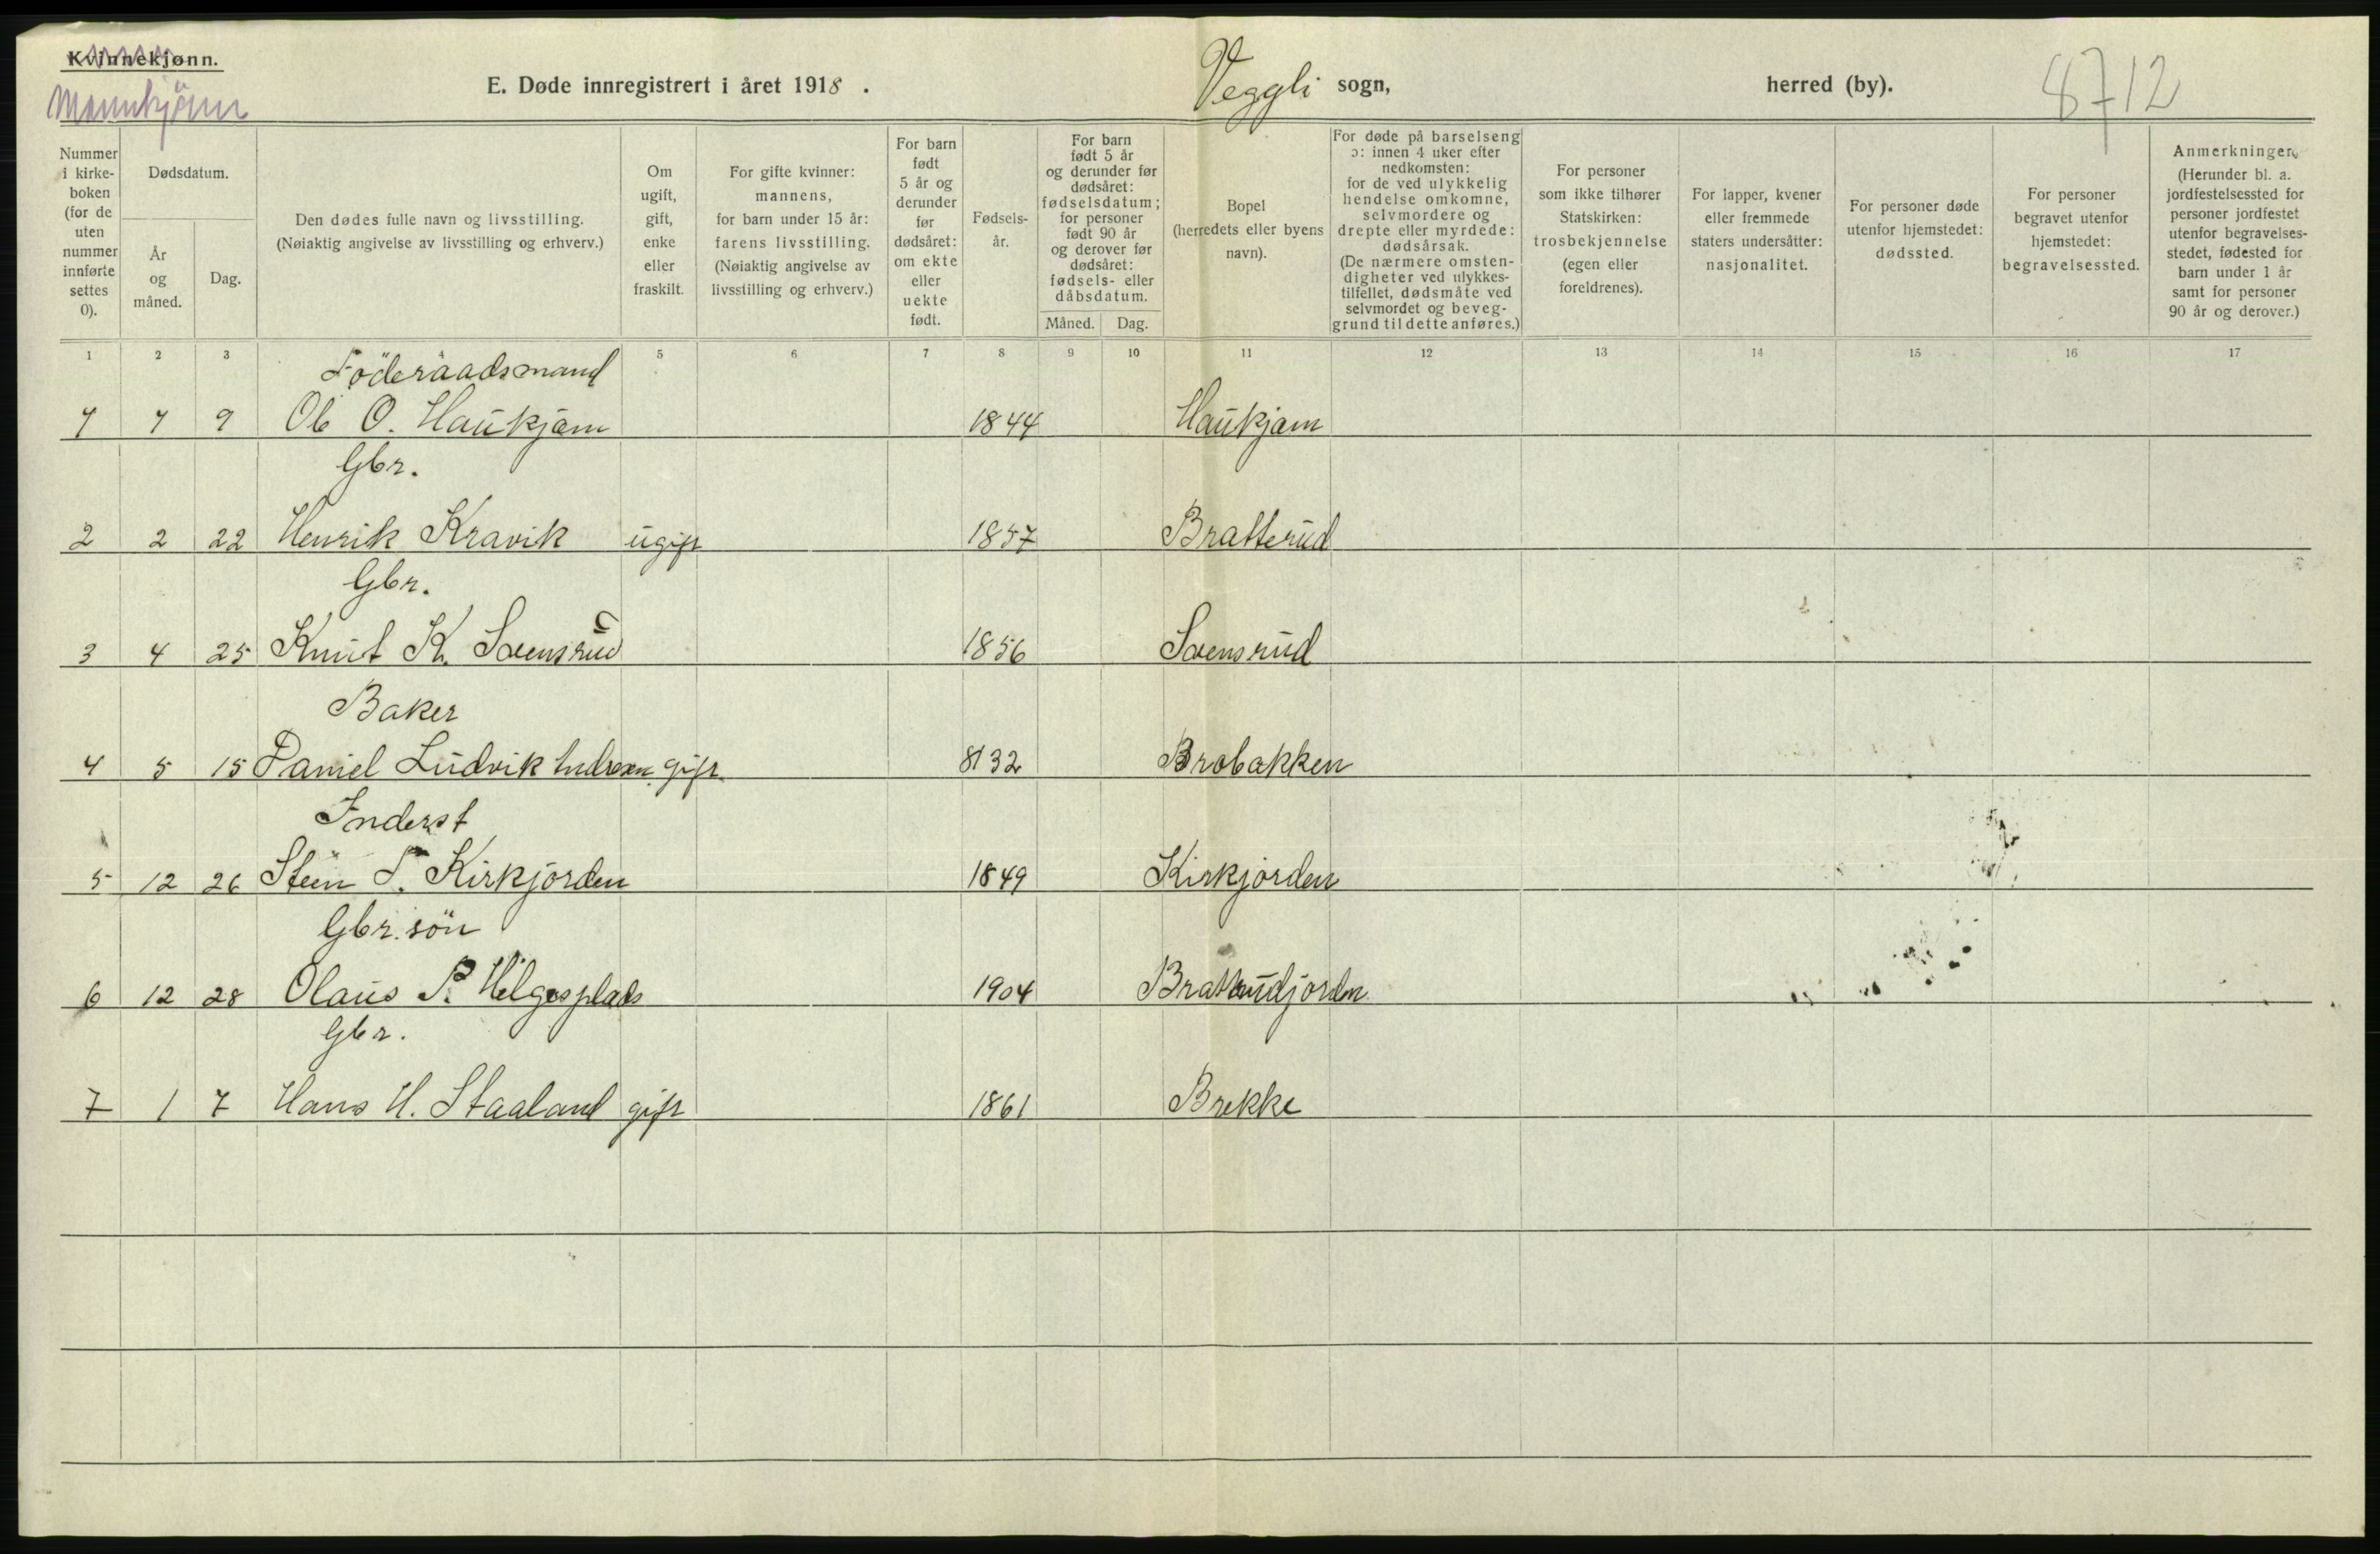 Kvinnekjønn.
Mannkjönn
E. Døde innregistrert i året 1918 .
Veggli sogn,
herred (by).
8712
Nummer i kirke-boken (for de uten nummer innførte settes 0).
Dødsdatum.
År og måned.
Dag.
Den dødes fulle navn og livsstilling. (Nøiaktig angivelse av livsstilling og erhverv.)
Om ugift, gift, enke eller fraskilt.
For gifte kvinner: mannens, for barn under 15 år: farens livsstilling. (Nøiaktig angivelse av livsstilling og erhverv.)
For barn født 5 år og derunder før dødsåret: om ekte eller uekte født.
Fødsels-år.
For barn født 5 år og derunder før dødsåret: fødselsdatum; for personer født 90 år og derover før dødsåret: fødsels- eller dåbsdatum.
Måned. Dag.
Bopel (herredets eller byens navn).
For døde på barselseng ɔ: innen 4 uker efter nedkomsten: for de ved ulykkelig hendelse omkomne, selvmordere og drepte eller myrdede: dødsårsak. (De nærmere omsten-digheter ved ulykkes-tilfellet, dødsmåte ved selvmordet og beveg-grund til dette anføres.)
For personer som ikke tilhører Statskirken: trosbekjennelse (egen eller foreldrenes).
For lapper, kvener eller fremmede staters undersåtter: nasjonalitet.
For personer døde utenfor hjemstedet: dødssted.
For personer begravet utenfor hjemstedet: begravelsessted.
Anmerkninger. (Herunder bl. a. jordfestelsessted for personer jordfestet utenfor begravelses-stedet, fødested for barn under 1 år samt for personer 90 år og derover.)
1 2 3 4 5 6 7 8 9 10 11 12 13 14 15 16 17
Föderaadsmand
1 7 9 Ole O. Haukjem 1844 Haukjem
Gbr.
2 2 22 Henrik Kravik ugift 1857 Bratterud
Gbr.
3 4 25 Knut K. Svensrud 1856 Svensrud
Baker
4 5 15 Daniel Ludvik gift 8132 Brobakken
Inderst
5 12 26 Steen S. Kirkjorden 1849 Kirkjorden
Gbr. sön
6 12 28 Olaus P. Helgesplads 1904 Bratterudjorden
Gbr.
7 1 7 Hans H. Staaland gift 1861 Brekke